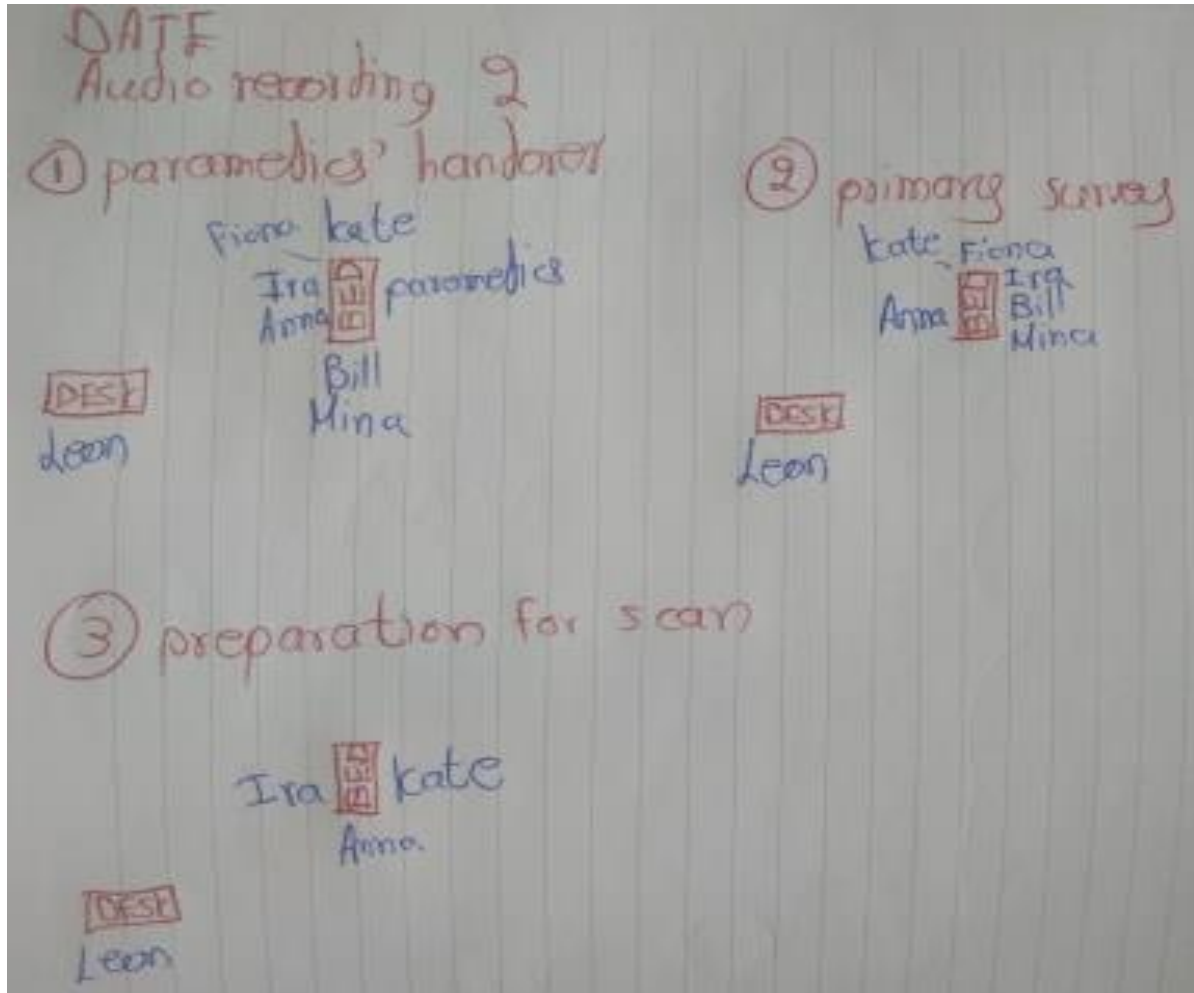 DATE
Audio recording 2
① paramedics' handover
Fiona kate
Ira BED paramedics
Anna
Bill
Mina
DESK
Leon
② primary survey
kate Fiona
Ira
Anna BED Bill
Mina
DESK
Leon
③ preparation for scan
Ira BED kate
Anna
DESK
Leon